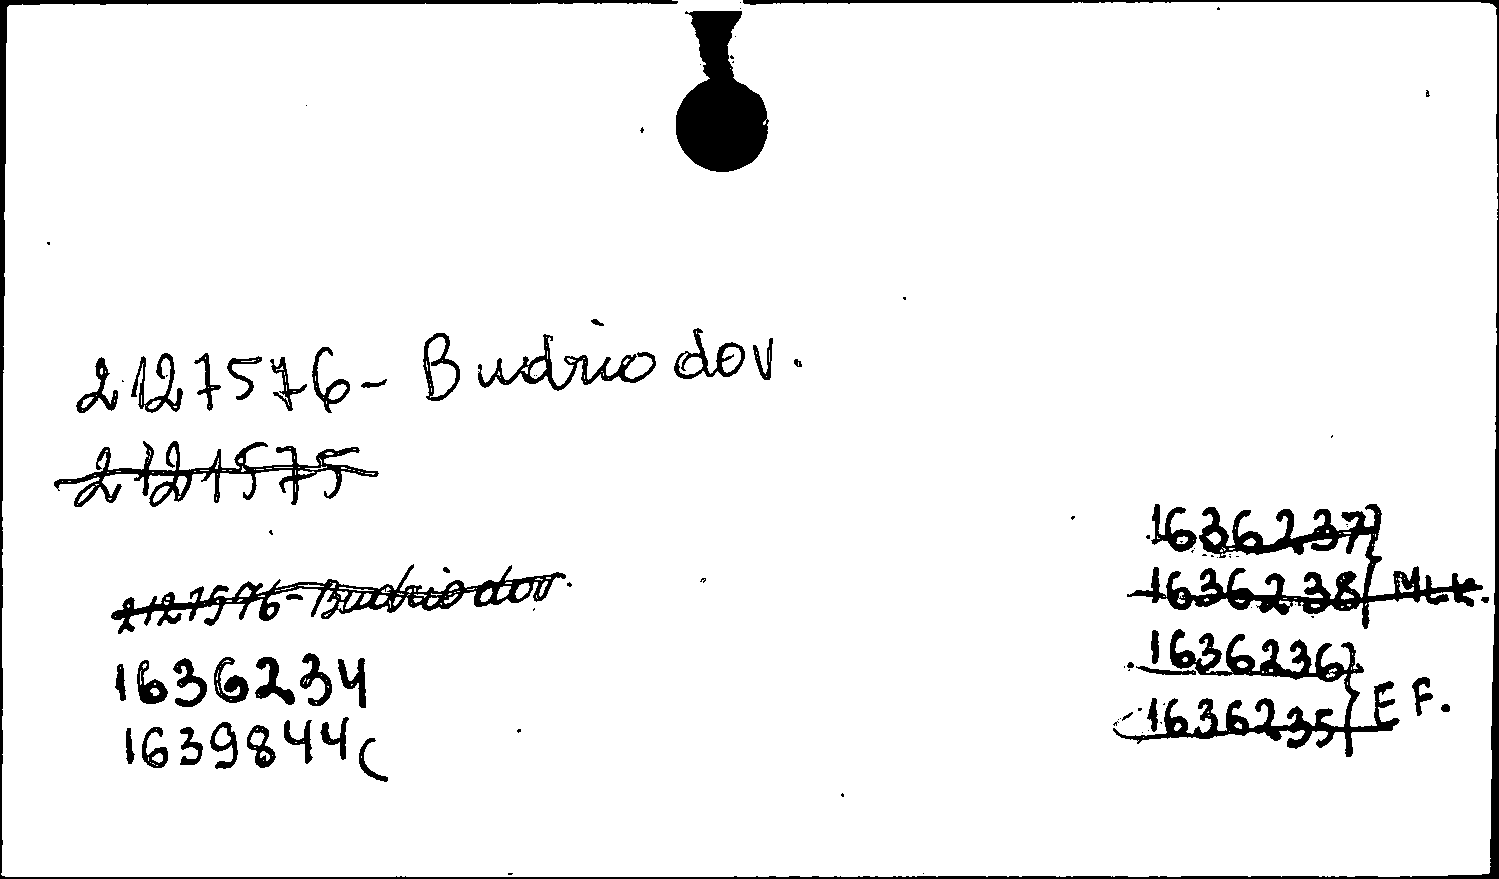 2127576- Budrio dov.
2121575
2127576- Budrio dov.
1636234
1639844
1636237
1636238 MLK.
1636236
1636235 E F.